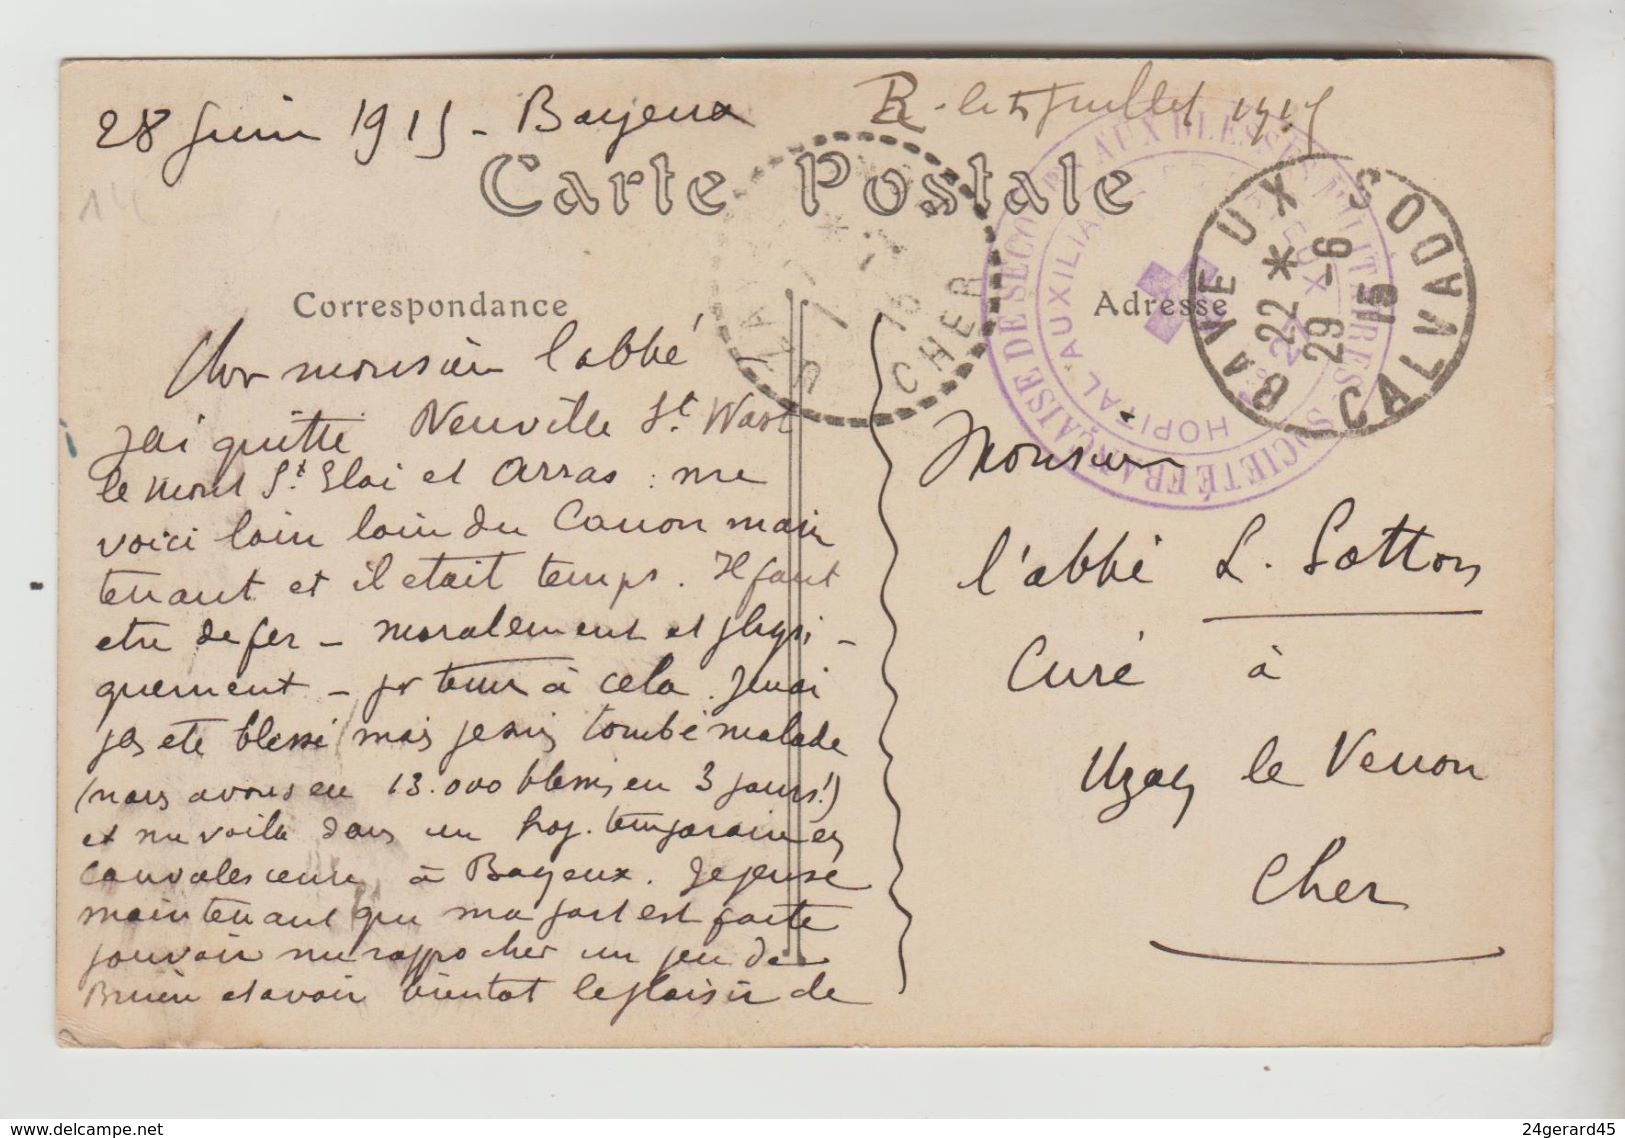 28 Juin 1915 - Bayeux
R. le 5 Juillet 1915
Carte Postale
Correspondance
Adresse
SOCIÉTÉ FRANÇAISE DE SECOURS AUX BLESSÉS MILITAIRES
HOPITAL AUXILIAIRE
BAYEUX CALVADOS
22 *
29 - 6
15
CHER
Cher monsieur l'abbé
J'ai quitté Neuville St. Wast
le Mont St. Eloi et Arras : me
voici loin loin du Canon main
tenant et il etait temps. Il faut
etre de fer - moralement et physi -
quement - pr tenir à cela. Je n'ai
pas eté blessé mais je suis tombé malade
(nous avons eu 13.000 blessés en 3 jours !)
et me voilà dans un hop. temporaire en
convalescence à Bayeux. Je pense
maintenant que ma part est faite
pouvoir me rapprocher un peu de
et avoir bientot le plaisir de
Monsieur
l'abbé L. Sotton
Curé à
Uzay le Venon
Cher
delcampe.net
24gerard45